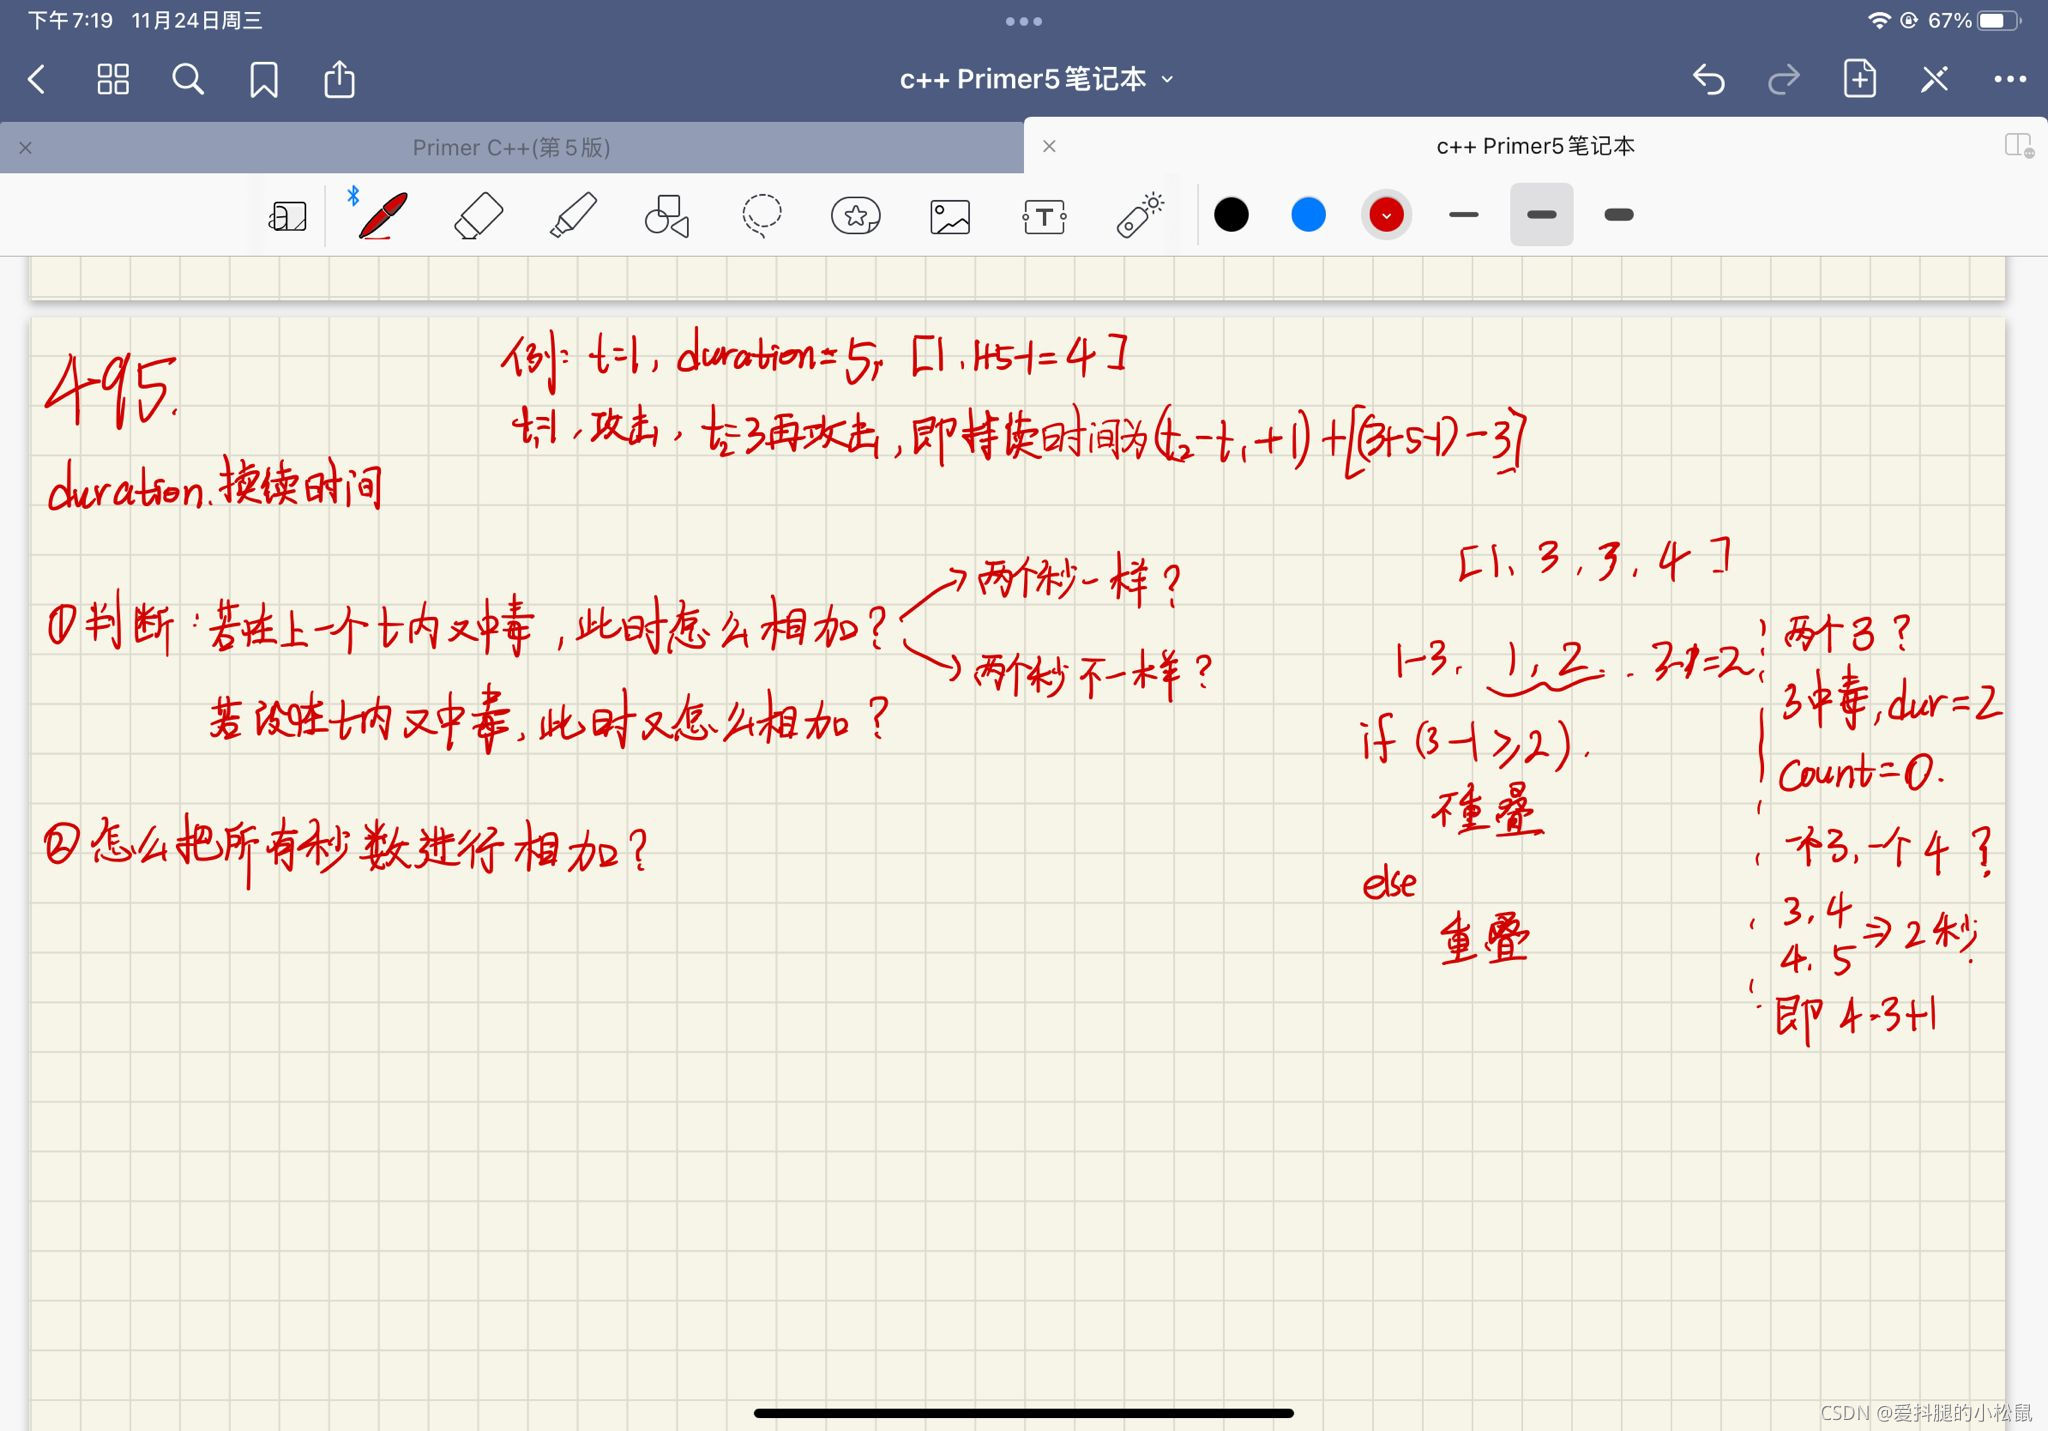 下午7:19 11月24日周三
67%
c++ Primer5笔记本
Primer C++(第5版)
c++ Primer5笔记本
495.
例: t=1, duration=5, [1, 1+5-1=4]
t₁=1, 攻击, t₂=3再攻击, 即持续时间为(t₂-t₁+1)+[(3+5-1)-3]
duration.持续时间
①判断: 若在上一个t内又中毒, 此时怎么相加?
→两个秒一样?
→两个秒不一样?
若没在t内又中毒, 此时又怎么相加?
②怎么把所有秒数进行相加?
[1, 3, 3, 4]
1-3, 1, 2. . 3-1=2
if (3-1≥2).
不重叠
else
重叠
两个3?
3中毒, dur=2
count=0.
一个3, 一个4?
3, 4
4, 5 ⇒ 2秒.
即 4-3+1
CSDN @爱抖腿的小松鼠